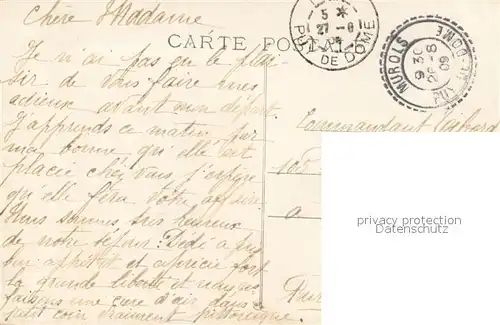 Chère Madame
CARTE POSTALE
5 *
27-8
PUY DE DOME
MUROLS
9 30
26-8
09
PUY-DE-DOME
Je n'ai pas eu le plai-
sir de vous faire mes
adieux avant mon départ.
J'apprends ce matin par
ma bonne qu'elle est
placée chez vous j'espère
qu'elle fera votre affaire.
Nous sommes très heureux
de notre séjour. Dédé a
appétit et apprécie fort
la grande liberté et nous
faisons une cure d'air dans ce
petit coin vraiment pittoresque.
Commandant
a
privacy protection
watermark